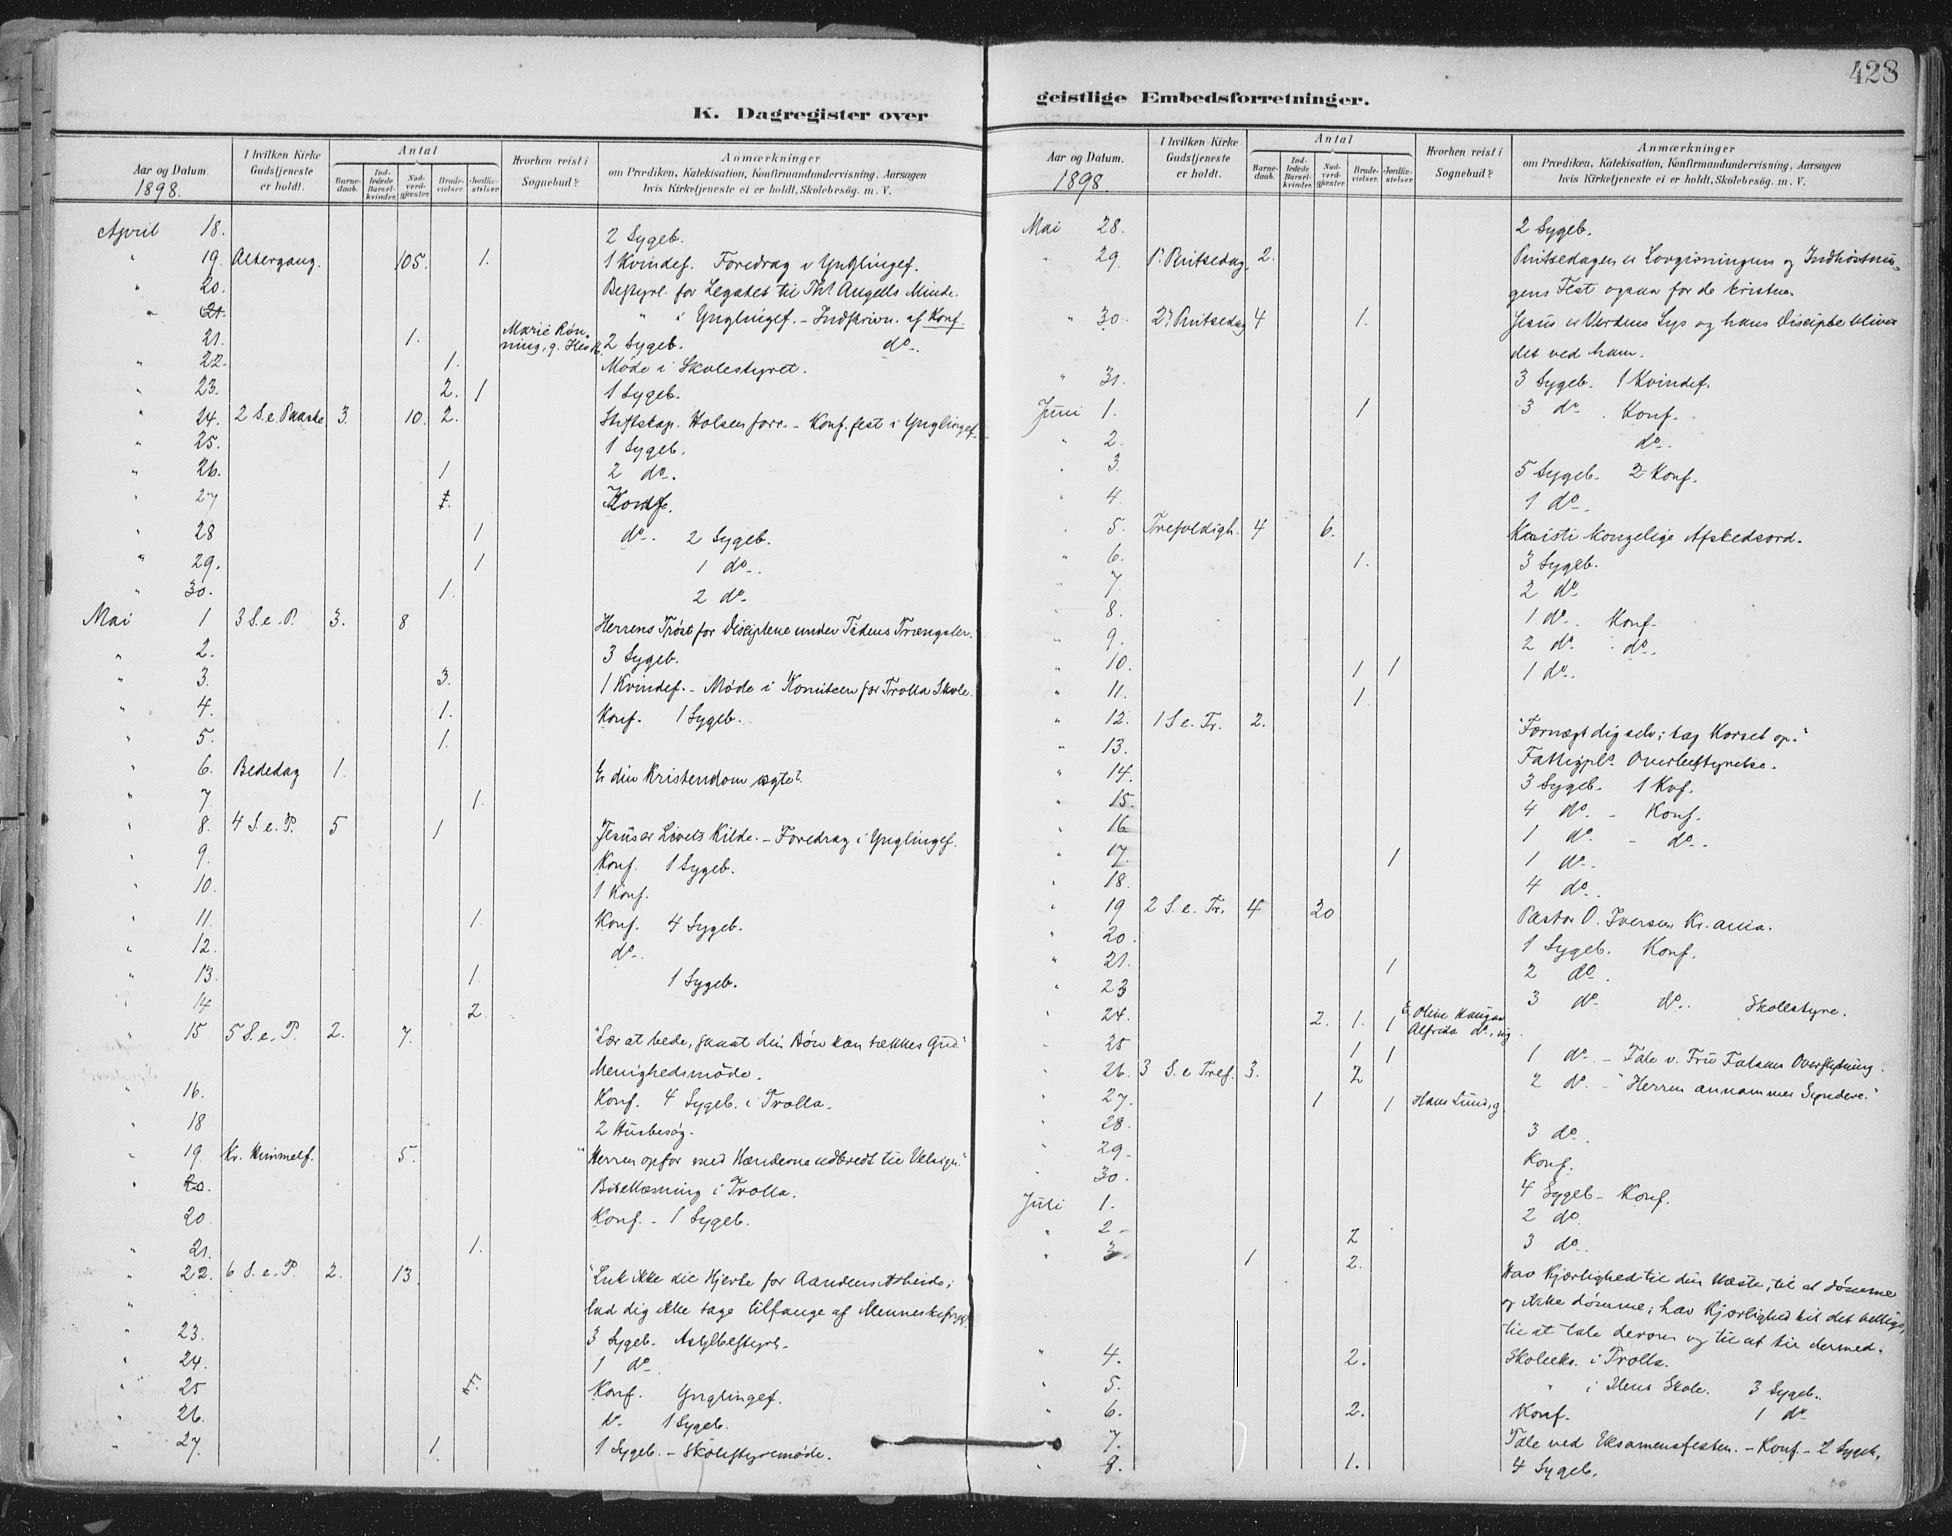 428
K. Dagregister over
Aar og Datum.
1898.
I hvilken Kirke Gudstjeneste er holdt.
Antal
Barnedaab.
Indledede Barselkvinder.
Nadverdgjester.
Brudevielser.
Jordfæstelser.
Hvorhen reist i Sognebud?
Anmærkninger
om Prædiken, Katekisation, Konfirmandundervisning, Aarsagen
hvis Kirketjeneste ei er holdt, Skolebesøg. m. V.
April 18. 2 Sygeb.
" 19. Altergang. 105. 1. 1 Kvindef. Foredrag i Ynglingef.
" 20. Bestyrl. for Legatet til Ths Angells Minde.
" 21. " i Ynglingef. - Indskrivn. af Konf.
21. 1. Marie Røn-
ning, g. 2 Sygeb. do.
" 22. 1. Møde i Skolestyret.
" 23. 2. 1 1 Sygeb.
" 24. 2 S. e. Paaske 3. 10. 2. Stiftskap. Holsen forr. - Konf.fest i Ynglingef.
" 25. 1 Sygeb.
" 26. 1 2 do.
" 27 1. Konf.
" 28 1 do. 2 Sygeb.
" 29. 1 1 do.
" 30. 1. 2 do.
Mai 1 3 S. e. P. 3. 8 Herrens Trøst for Disciplene under Tidens Trængsler.
" 2. 3 Sygeb.
" 3. 3. 1 Kvindef. - Møde i Komiteen for Trolla Skole.
" 4. 1. Konf. 1 Sygeb.
" 5. 1.
" 6. Bededag 1. Er din Kristendom ægte?
" 7 1.
" 8. 4 S. e. P. 5 1 Jesus er Livets Kilde. - Foredrag i Ynglingef.
" 9. Konf. 1 Sygeb.
" 10. 1 Konf.
" 11. 1. Konf. 4 Sygeb.
" 12. do.
" 13. 1. 1 Sygeb.
14 2.
" 15 5 S. e. P. 2. 7. "Lær at bede, saaat din Bøn kan tækkes Gud"
Menighedsmøde.
" 16. Konf. 4 Sygeb. i Trolla.
" 18 2 Husbesøg.
" 19. Kr. Himmelf. 5. "Herren opfor med Hænderne udbredt til Velsign."
" 20. Bibellæsning i Trolla.
20. Konf. - 1 Sygeb.
" 21. 1.
" 22. 6 S. e. P. 2. 13. "Luk ikke dit Hjerte for Aandens Arbeide;
" lad dig ikke tage tilfange af Menneskefrygt."
" 23. 3 Sygeb. Asylbestyrl.
" 24. 1 do.
" 25 Konf. Ynglingef.
" 26. do. 1 Sygeb.
" 27. 1. 1 Sygeb. - Skolestyremøde.
geistlige Embedsforretninger.
Aar og Datum.
1898
I hvilken Kirke Gudstjeneste er holdt.
Antal
Barnedaab.
Indledede Barselkvinder.
Nadverdgjester.
Brudevielser.
Jordfæstelser.
Hvorhen reist i Sognebud?
Anmærkninger
om Prædiken, Katekisation, Konfirmandundervisning, Aarsagen
hvis Kirketjeneste ei er holdt, Skolebesøg. m. V.
Mai 28. 2 Sygeb.
" 29. 1ste Pintsedag 2. Pintsedagen er Lovgivningens og Indhøstnin-
gens Fest ogsaa for de kristne.
" 30. 2. Pintsedag 4 1. Jesus er Verdens Lys og hans Disciple bliver
det ved ham.
" 31. 3 Sygeb. 1 Kvindef.
Juni 1. 1 3 do. Konf.
" 2. do.
" 3. 5 Sygeb. 2 Konf.
" 4. 1 do.
" 5. Trefoldigh. 4 6. Kristi kongelige Afskedsord.
" 6. 1. 3 Sygeb.
" 7 2 do.
" 8. 1 do. Konf.
" 9. 2 do. do.
" 10. 1 1 1 do.
" 11. 1.
" 12. 1 S. e. Tr. 2. "Fornægt dig selv; tag Korset op."
" 13. Fattigpl. Overbestyrelse.
" 14. 3 Sygeb. 1 Kvf.
" 15. 4 do. - Konf.
" 16 1 do. - do.
" 17. 1 1 do.
" 18. 4 do.
" 19 2 S. e. Tr. 4 20 Pastor O. Iversen Kr.ania.
" 20. 1 Sygeb. Konf.
" 21. 1 2 do.
" 23 3 do. do. Skolestyre.
" 24. 2. 1. 1 Oline Haugan
Alfrida do., ug.
25 1 1 1 do. - Tale v. Fru Overflytning.
" 26. 3 S. e Tref. 3. 2 2 do. - "Herren annammer Syndere."
" 27. 1 1 Hans Lund, g.
" 28. 3 do.
" 29. Konf.
" 30. 4 Sygeb - Konf.
Juli 1. 2 do.
" 2 - 2 3 do.
" 3. 1 2. Hav Kjærlighed til din Næste, til at dømme
og ikke dømme; hav Kjærlighed til det hellige,
til at tale derom og til at tie dermed.
" 4. 2. Skoleeks. i Trolla.
" 5. " i Ilens Skole. 3 Sygeb.
" 6. 2. Konf. 1 do.
" 7. Tale ved Eksamensfesten. - Konf - 2 Sygeb.
" 8. 1. 4 Sygeb.